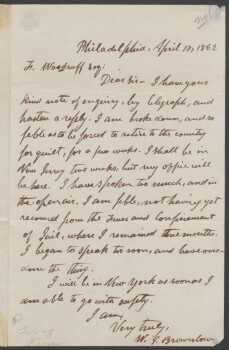 Philadelphia, April 18, 1862
F. Woodruff Esq:
Dear Sir - I have your
kind note of enquiry, by telegraph, and
hasten a reply. I am broke down, and so
feeble as to be forced to retire to the country
for quiet, for a few weeks. I shall be in
New Jersey two weeks, but my office will
be here. I have spoken too much, and in
the open air. I am feeble, not having yet
recovered from the Fever and Confinement
of Jail, where I remained three months.
I began to speak too soon, and have over-
done the thing.
I will be in New York as soon as I
am able to go with safety.
I am,
Very truly,
W. G. Brownlow